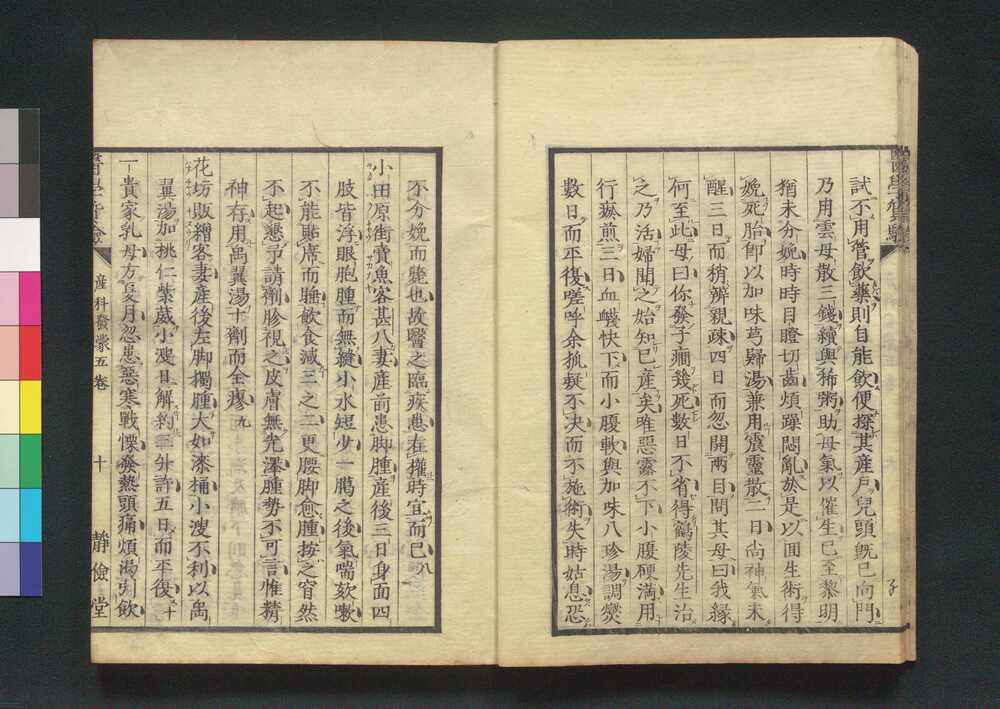 試不用管飮藥則自能飮便探其產戶兒頭既已向門
乃用雲母散三錢續與稀粥助母氣以催生已至黎明
猶未分娩時時目瞪切齒煩躁悶亂於是以回生術得
娩死胎卽以加味芎歸湯兼用震靈散二日尚神氣未
醒三日而稍辨親疎四日而忽開兩目問其母曰我緣
何至此母曰你發子癎幾死數日不省得鶴陵先生治
之乃活婦聞之始知已產矣唯惡露不下小腹硬滿用
行瘀煎三日血衊快下而小腹軟與加味八珍湯調爕
數日而平復嗟呼余狐疑不決而不施術失時姑息恐
不分娩而斃也故醫之臨疾患在權時宜而已八
小田原街賣魚客甚八妻產前患脚腫產後三日身面四
肢皆浮眼胞腫而無縫小水短少一腸之後氣喘欬嗽
不能貼席而睡飮食減三之二更腰脚愈腫按之窅然
不起懇予請劑胗視之皮膚無光澤腫勢不可言惟精
神存用禹翼湯十劑而全瘳九
花坊販繒客妻產後左脚獨腫大如漆桶小溲不利以禹
翼湯加桃仁紫葳小溲日解約三升許五日而平復十
一貴家乳母方夏月忽患惡寒戰慄發熱頭痛煩渴引飮
產科發蒙五卷
十
靜儉堂